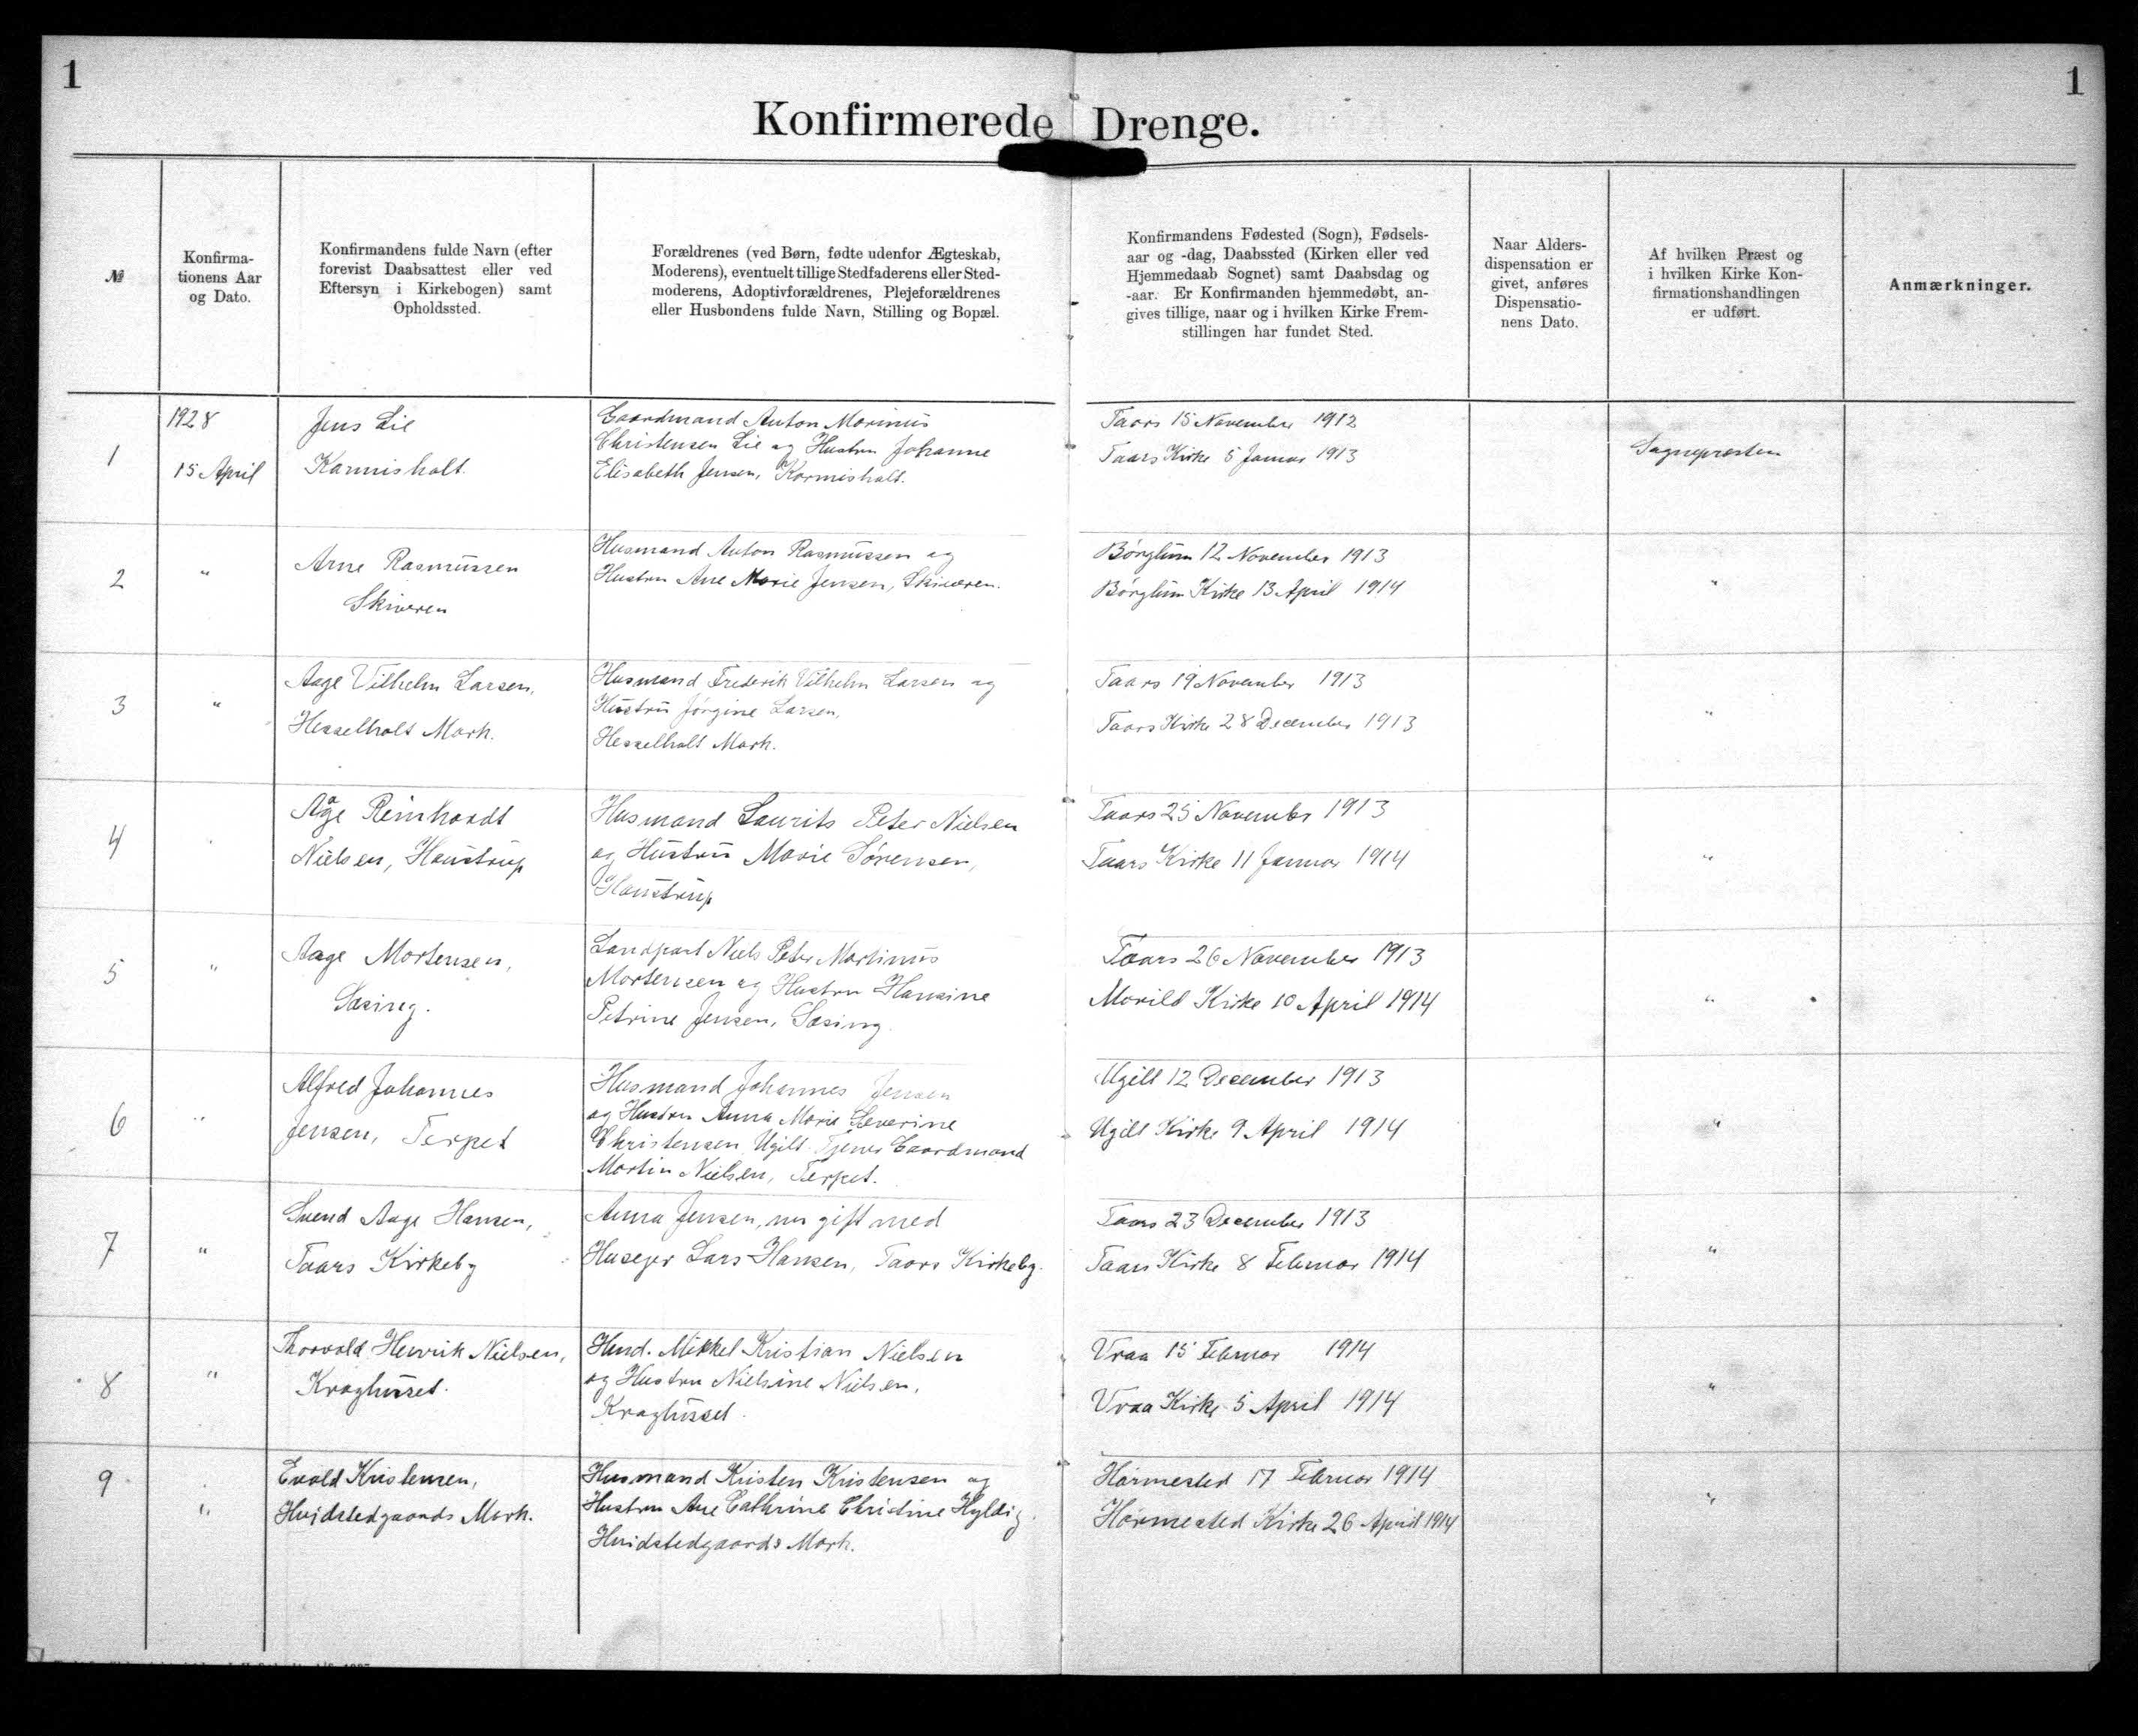 1
1
Konfirmerede Drenge.
№
Konfirma-
tionens Aar
og Dato.
Konfirmandens fulde Navn (efter
forevist Daabsattest eller ved
Eftersyn i Kirkebogen) samt
Opholdssted.
Forældrenes (ved Børn, fødte udenfor Ægteskab,
Moderens), eventuelt tillige Stedfaderens eller Sted-
moderens, Adoptivforældrenes, Plejeforældrenes
eller Husbondens fulde Navn, Stilling og Bopæl.
Konfirmandens Fødested (Sogn), Fødsels-
aar og -dag, Daabssted (Kirken eller ved
Hjemmedaab Sognet) samt Daabsdag og
-aar. Er Konfirmanden hjemmedøbt, an-
gives tillige, naar og i hvilken Kirke Frem-
stillingen har fundet Sted.
Naar Alders-
dispensation er
givet, anføres
Dispensatio-
nens Dato.
Af hvilken Præst og
i hvilken Kirke Kon-
firmationshandlingen
er udført.
Anmærkninger.
1
1928
15 April
Jens Lie
Karmisholt.
Gaardmand Anton Marinus
Christensen Lie og Hustru Johanne
Elisabeth Jensen, Karmisholt.
Taars 15 November 1912
Taars Kirke 5 Januar 1913
Sognepræsten
2
"
Arne Rasmussen
Skiveren
Husmand Anton Rasmussen og
Hustru Ane Marie Jensen, Skiveren.
Børglum 12 November 1913
Børglum Kirke 13 April 1914
"
3
"
Aage Vilhelm Larsen,
Hesselholt Mark.
Husmand Frederik Vilhelm Larsen og
Hustru Jørgine Larsen,
Hesselholt Mark.
Taars 19 November 1913
Taars Kirke 28 December 1913
"
4
"
Åge Reinhardt
Nielsen, Haustrup
Husmand Laurits Peter Nielsen
og Hustru Marie Sørensen,
Haustrup
Taars 25 November 1913
Taars Kirke 11 Januar 1914
"
5
"
Aage Mortensen,
Sæsing.
Landpost Niels Peter Martinus
Mortensen og Hustru Hansine
Petrine Jensen, Sæsing.
Taars 26 November 1913
Morild Kirke 10 April 1914
"
6
"
Alfred Johannes
Jensen, Terpet
Husmand Johannes Jensen
og Hustru Anna Marie Severine
Christensen Ugilt. Tjener Gaardmand
Martin Nielsen, Terpet.
Ugilt 12 December 1913
Ugilt Kirke 9 April 1914
"
7
"
Svend Aage Hansen,
Taars Kirkeby
Anna Jensen, nu gift med
Husejer Lars Hansen, Taars Kirkeby.
Taars 23 December 1913
Taars Kirke 8 Februar 1914
"
8
"
Thorvald Henrik Nielsen,
Kraghuset.
Hmd. Mikkel Kristian Nielsen
og Hustru Nielsine Nielsen,
Kraghuset.
Vraa 15 Februar 1914
Vraa Kirke 5 April 1914
"
9
"
Evald Kristensen,
Hvidstedgaards Mark.
Husmand Kristen Kristensen og
Hustru Ane Cathrine Christine Hyldig.
Hvidstedgaards Mark.
Hørmested 17 Februar 1914
Hørmested Kirke 26 April 1914
"